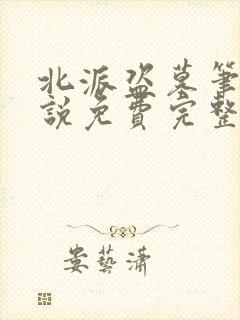 北派盗墓笔
說免費完整
娄藝潇